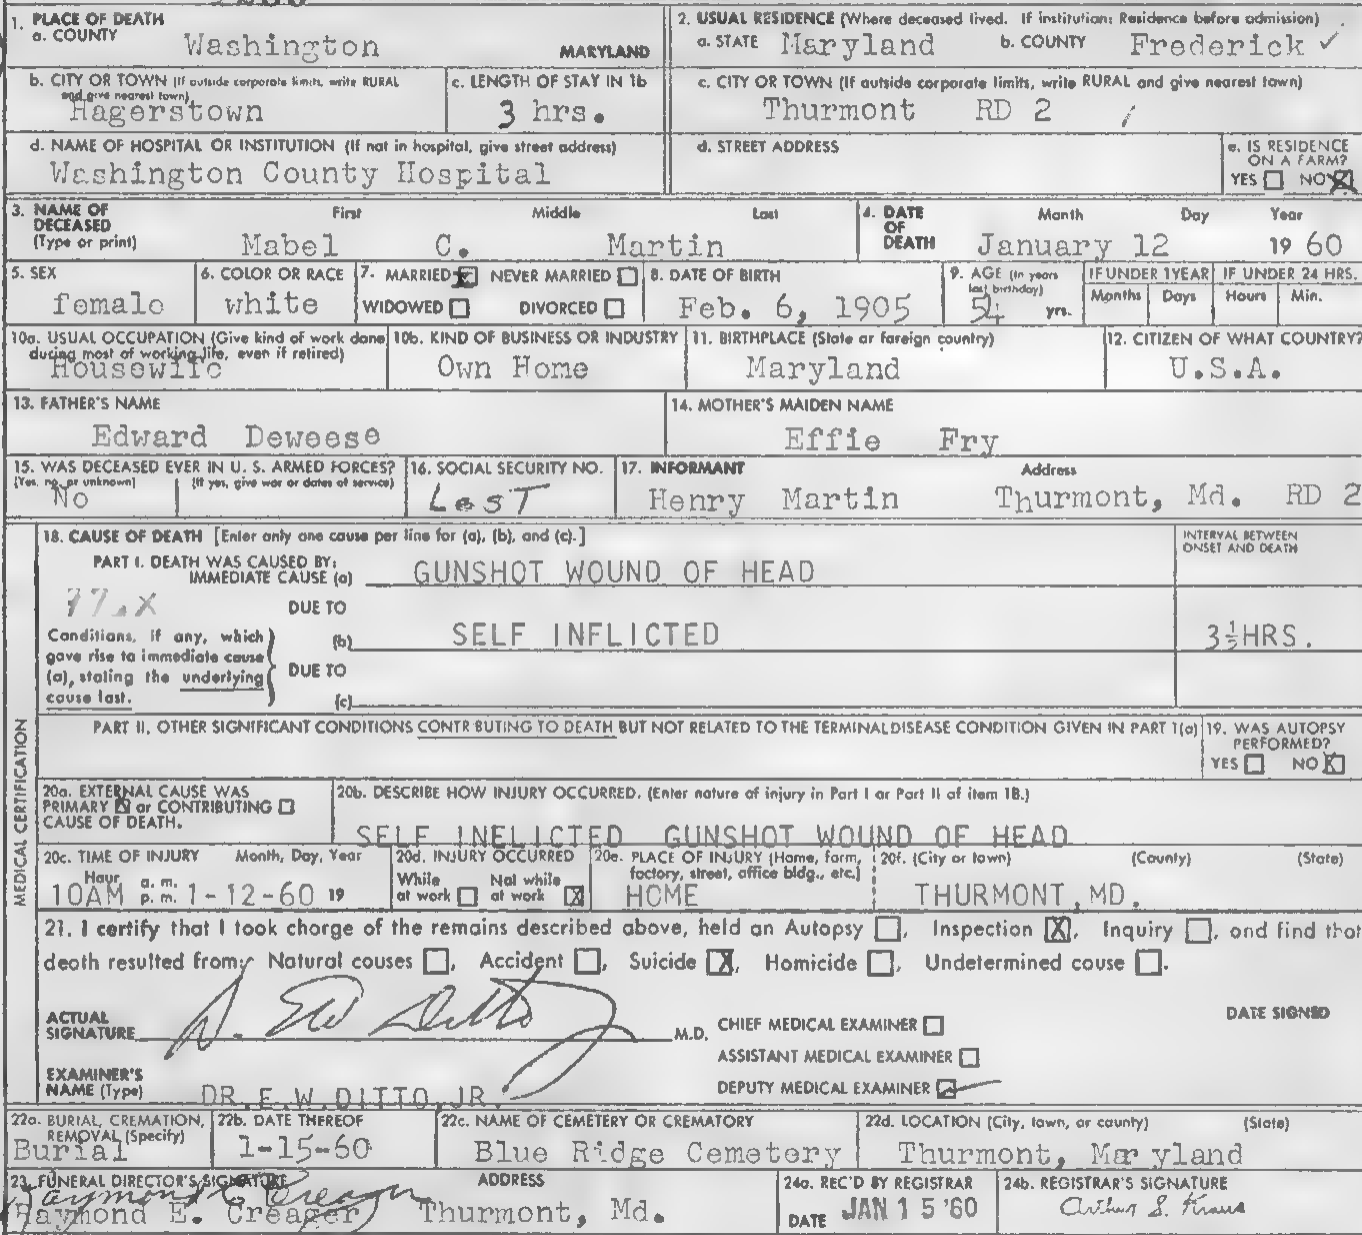 1. PLACE OF DEATH
a. COUNTY Washington MARYLAND
2. USUAL RESIDENCE (Where deceased lived. If institution: Residence before admission)
a. STATE Maryland b. COUNTY Frederick ✓
b. CITY OR TOWN (If outside corporate limits, write RURAL and give nearest town)
Hagerstown
c. LENGTH OF STAY IN 1b
3 hrs.
c. CITY OR TOWN (If outside corporate limits, write RURAL and give nearest town)
Thurmont RD 2
d. NAME OF HOSPITAL OR INSTITUTION (If not in hospital, give street address)
Washington County Hospital
d. STREET ADDRESS
e. IS RESIDENCE ON A FARM?
YES ☐ NO ☒
3. NAME OF DECEASED (Type or print)
First Middle Last
Mabel C. Martin
4. DATE OF DEATH
Month Day Year
January 12 1960
5. SEX
female
6. COLOR OR RACE
white
7. MARRIED ☒ NEVER MARRIED ☐
WIDOWED ☐ DIVORCED ☐
8. DATE OF BIRTH
Feb. 6, 1905
9. AGE (In years last birthday)
54 yrs.
IF UNDER 1 YEAR
Months Days
IF UNDER 24 HRS.
Hours Min.
10a. USUAL OCCUPATION (Give kind of work done during most of working life, even if retired)
Housewife
10b. KIND OF BUSINESS OR INDUSTRY
Own Home
11. BIRTHPLACE (State or foreign country)
Maryland
12. CITIZEN OF WHAT COUNTRY?
U.S.A.
13. FATHER'S NAME
Edward Deweese
14. MOTHER'S MAIDEN NAME
Effie Fry
15. WAS DECEASED EVER IN U. S. ARMED FORCES?
(Yes, no, or unknown) (If yes, give war or dates of service)
No
16. SOCIAL SECURITY NO.
LosT
17. INFORMANT Address
Henry Martin Thurmont, Md. RD 2
MEDICAL CERTIFICATION
18. CAUSE OF DEATH [Enter only one cause per line for (a), (b), and (c).]
INTERVAL BETWEEN ONSET AND DEATH
PART I. DEATH WAS CAUSED BY:
IMMEDIATE CAUSE (a) GUNSHOT WOUND OF HEAD
DUE TO
Conditions, if any, which gave rise to immediate cause (a), stating the underlying cause last.
(b) SELF INFLICTED 3½HRS.
DUE TO
(c)
PART II. OTHER SIGNIFICANT CONDITIONS CONTRIBUTING TO DEATH BUT NOT RELATED TO THE TERMINAL DISEASE CONDITION GIVEN IN PART I(a)
19. WAS AUTOPSY PERFORMED?
YES ☐ NO ☒
20a. EXTERNAL CAUSE WAS
PRIMARY ☒ or CONTRIBUTING ☐
CAUSE OF DEATH.
20b. DESCRIBE HOW INJURY OCCURRED. (Enter nature of injury in Part I or Part II of item 18.)
SELF INFLICTED GUNSHOT WOUND OF HEAD
20c. TIME OF INJURY Month, Day, Year
Hour a. m. p. m.
10AM 1-12-60 19
20d. INJURY OCCURRED
While at work ☐ Not while at work ☒
20e. PLACE OF INJURY (Home, farm, factory, street, office bldg., etc.)
HOME
20f. (City or town) (County) (State)
THURMONT, MD.
21. I certify that I took charge of the remains described above, held an Autopsy ☐, Inspection ☒, Inquiry ☐, and find that
death resulted from: Natural causes ☐, Accident ☐, Suicide ☒, Homicide ☐, Undetermined cause ☐.
ACTUAL SIGNATURE E W Ditto M.D.
CHIEF MEDICAL EXAMINER ☐
DATE SIGNED
ASSISTANT MEDICAL EXAMINER ☐
EXAMINER'S NAME (Type) DR. E.W. DITTO, JR.
DEPUTY MEDICAL EXAMINER ☑
22a. BURIAL, CREMATION, REMOVAL (Specify)
Burial
22b. DATE THEREOF
1-15-60
22c. NAME OF CEMETERY OR CREMATORY
Blue Ridge Cemetery
22d. LOCATION (City, town, or county) (State)
Thurmont, Maryland
23. FUNERAL DIRECTOR'S SIGNATURE ADDRESS
Raymond E. Creager
Raymond E. Creager Thurmont, Md.
24a. REC'D BY REGISTRAR
DATE JAN 15 '60
24b. REGISTRAR'S SIGNATURE
Arthur S. Kraus